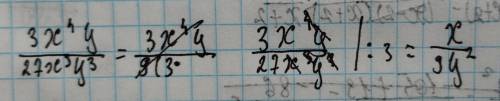 3x⁴y / 27x³y³ = 3x⁴y / 9(3· 3x⁴y / 27x³y³ | : 3 = x / 9y²